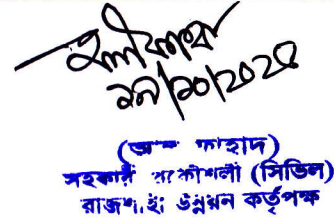 ১৭/১০/২০২৫
ফাহাদ)
সহকারী প্রকৌশলী (সিভিল)
রাজশাহী উন্নয়ন কর্তৃপক্ষ